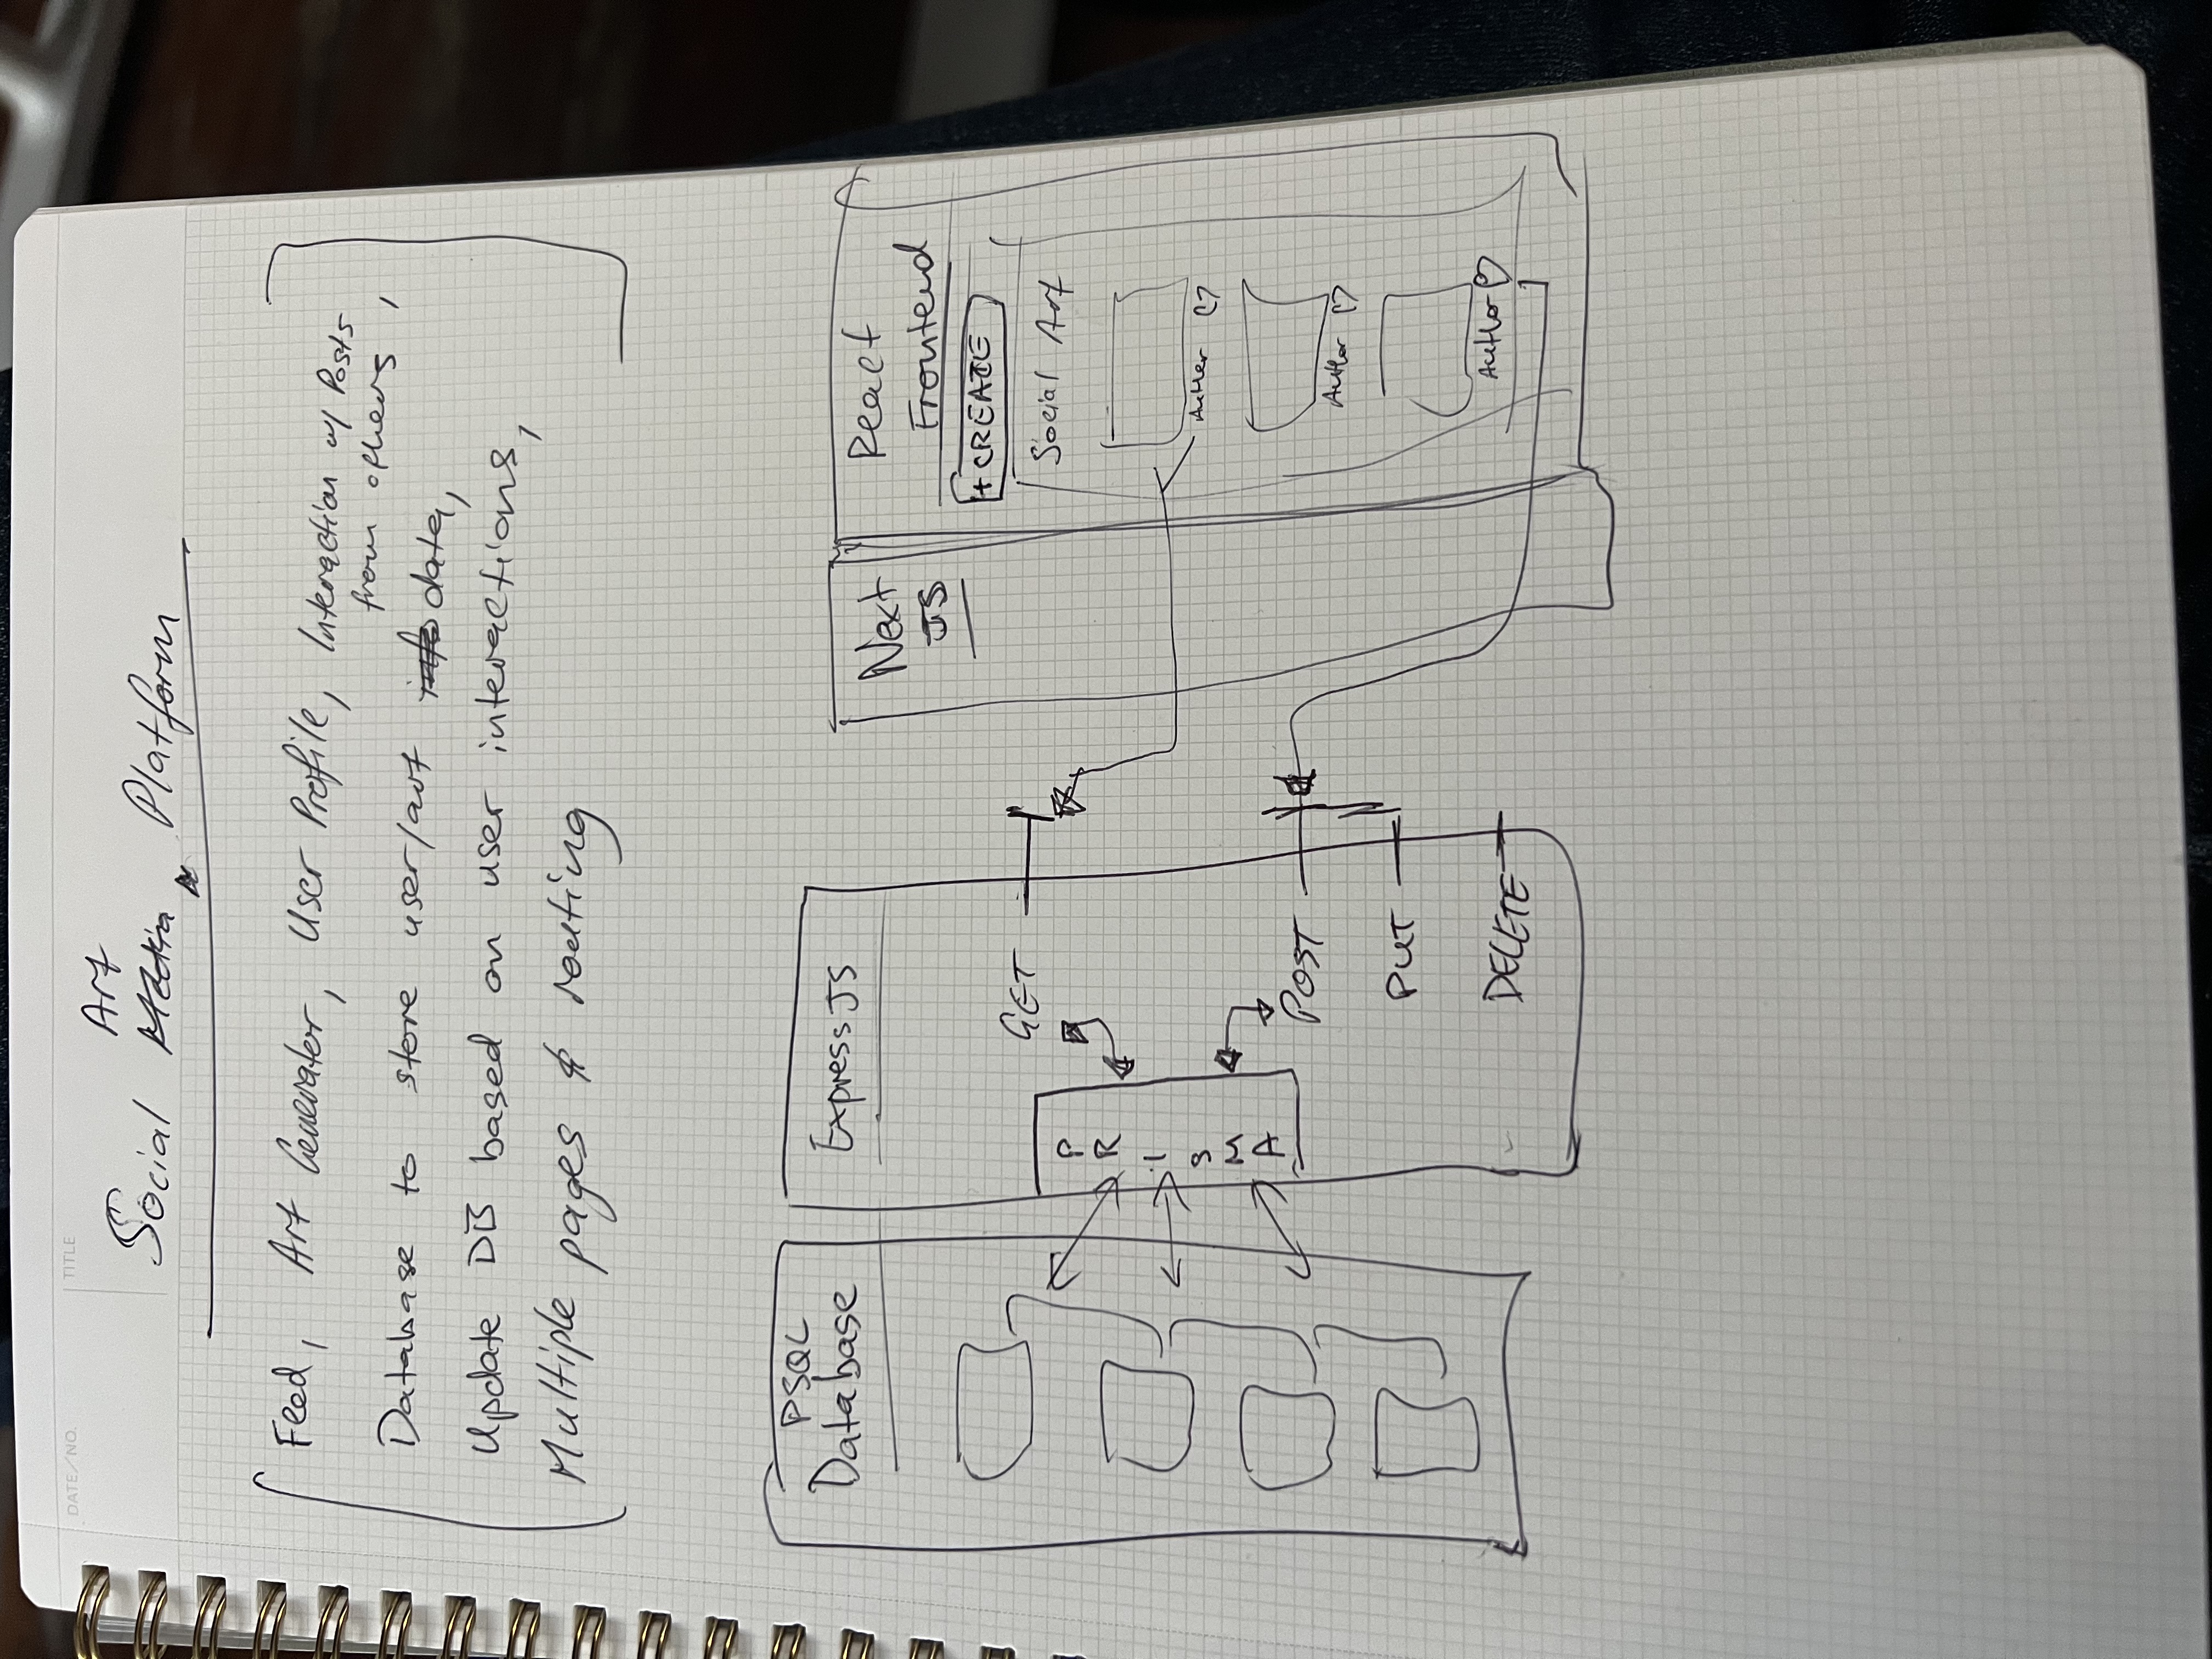 TITLE
DATE/NO.
Art
Social Media Platform
Feed, Art Generater, User Profile, Interaction w/ Posts
from others,
Database to store user/art info data,
Update DB based on user interactions,
Multiple pages & routing
PSQL
Database
ExpressJS
PRISMA
GET
POST
PUT
DELETE
Next
JS
React
Frontend
+ CREATE
Social Art
Author
Author
Author